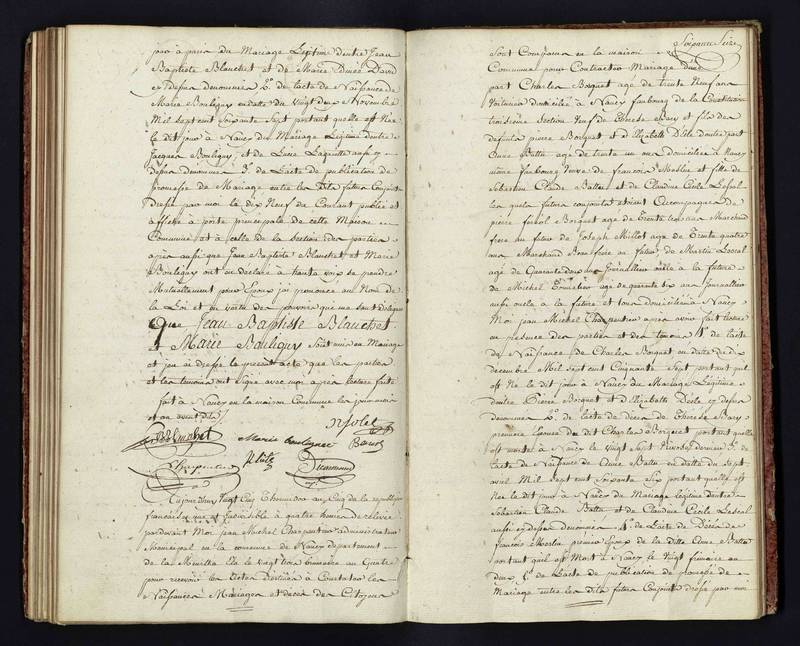 par à paris du Mariage Légitime d'entre Jean
Baptiste Blanchet et de Marie Dinée David
cy dessus denommés 2°. de lacte de Naissance de
Marie Bouligny en datte du vingt deux Novembre
Mil sept cent soixante sept portant quelle est Née
le dit jour à Nancy du Mariage Légitime d'entre
Jacques Bouligny et de Lucie Lagneitte aussi cy
dessus dénommés 3°. de Lacte de publication de
promesse de Mariage entre les dits futurs Conjoints
dressé par moi le dix Neuf du Courant publié et
affiché à porte principale de cette Maison
Commune et à celle de la section des parties
après aussi que Jean Baptiste Blanchet et Marie
Bouligny ont eu déclaré à haute voix se prendre
Mutuellement pour Epoux j'ai prononcé au Nom de
la Loi et en vertu des pouvoirs qui me sont délégués
Que Jean Baptiste Blanchet
et Marie Bouligny sont unis en Mariage
et jen ai dressé le présent acte que les parties
et les temoins ont signé avec moi après lecture faite
fait à Nancy en la maison Commune les jour mois
et an avant dits
Nicolet
Blanchet Marie bouligny
Charpentier
aujourd'huy vingt cinq thermidor an Cinq de la république
française une et indivisible à quatre heures de relevée
pardevant Moi jean Michel Charpentier administrateur
Municipal en la commune de Nancy département
de la Meurthe Elu le vingt trois brumaire an Quatre
pour recevoir les Actes destinés à Constater les
Naissances Mariages et décès des Citoyens
Soixante Seize
Sont Comparus en la maison
Commune pour Contracter Mariage d'une
part Charles Borquet age de trente Neuf ans
domicilié à Nancy faubourg de la Constitution
troisieme section Veuf de Thérese Bary et fils des
defunts pierre Borquet et d'Elizabeth d'autre part
Anne Batta agé de trente un ans domiciliée à Nancy
même faubourg Veuve de francois et fille de
Sébastien Claude Batta et de Claudine Cécile Lescal
les quels futurs conjoints étoient Accompagnés de
pierre Borquet age de trente ans Marchand
frere au futur de Joseph Millot age de Trente quatre
ans Marchand Beau frere au futur de Martin Lescal
age de Quarante deux ans Journallier oncle à la future
de Michel age de quarante six ans Journallier
aussi oncle à la future et tous domiciliés à Nancy
Moi jean Michel Charpentier après avoir fait lecture
en présence des parties et des temoins 1°. de lacte
de Naissance de Charles Borquet en datte du dix
decembre Mil sept cent Cinquante sept portant quil
est Né le dit jour à Nancy du Mariage Légitime
d'entre Pierre Borquet et d'Elizabeth cy dessus
denommés 2°. de lacte de décès de Thérese Bary
premiere Epouse du dit Charles Borquet portant quelle
est morte à Nancy le vingt sept Nivose dernier 3°. de
lacte de Naissance de Anne Batta en datte du sept
avril Mil sept cent soixante six portant quelle est
Née le dit jour à Nancy du Mariage légitime d'entre
Sébastien Claude Batta et de Claudine Cécile Lescal
aussi cy dessus denommés 4°. de Lacte de Décès de
françois premier Epoux de la ditte Anne Batta
portant quil est Mort à Nancy le vingt frimaire an
deux 5°. de Lacte de publication de promesse de
Mariage entre les dits futurs Conjoints dressé par moi